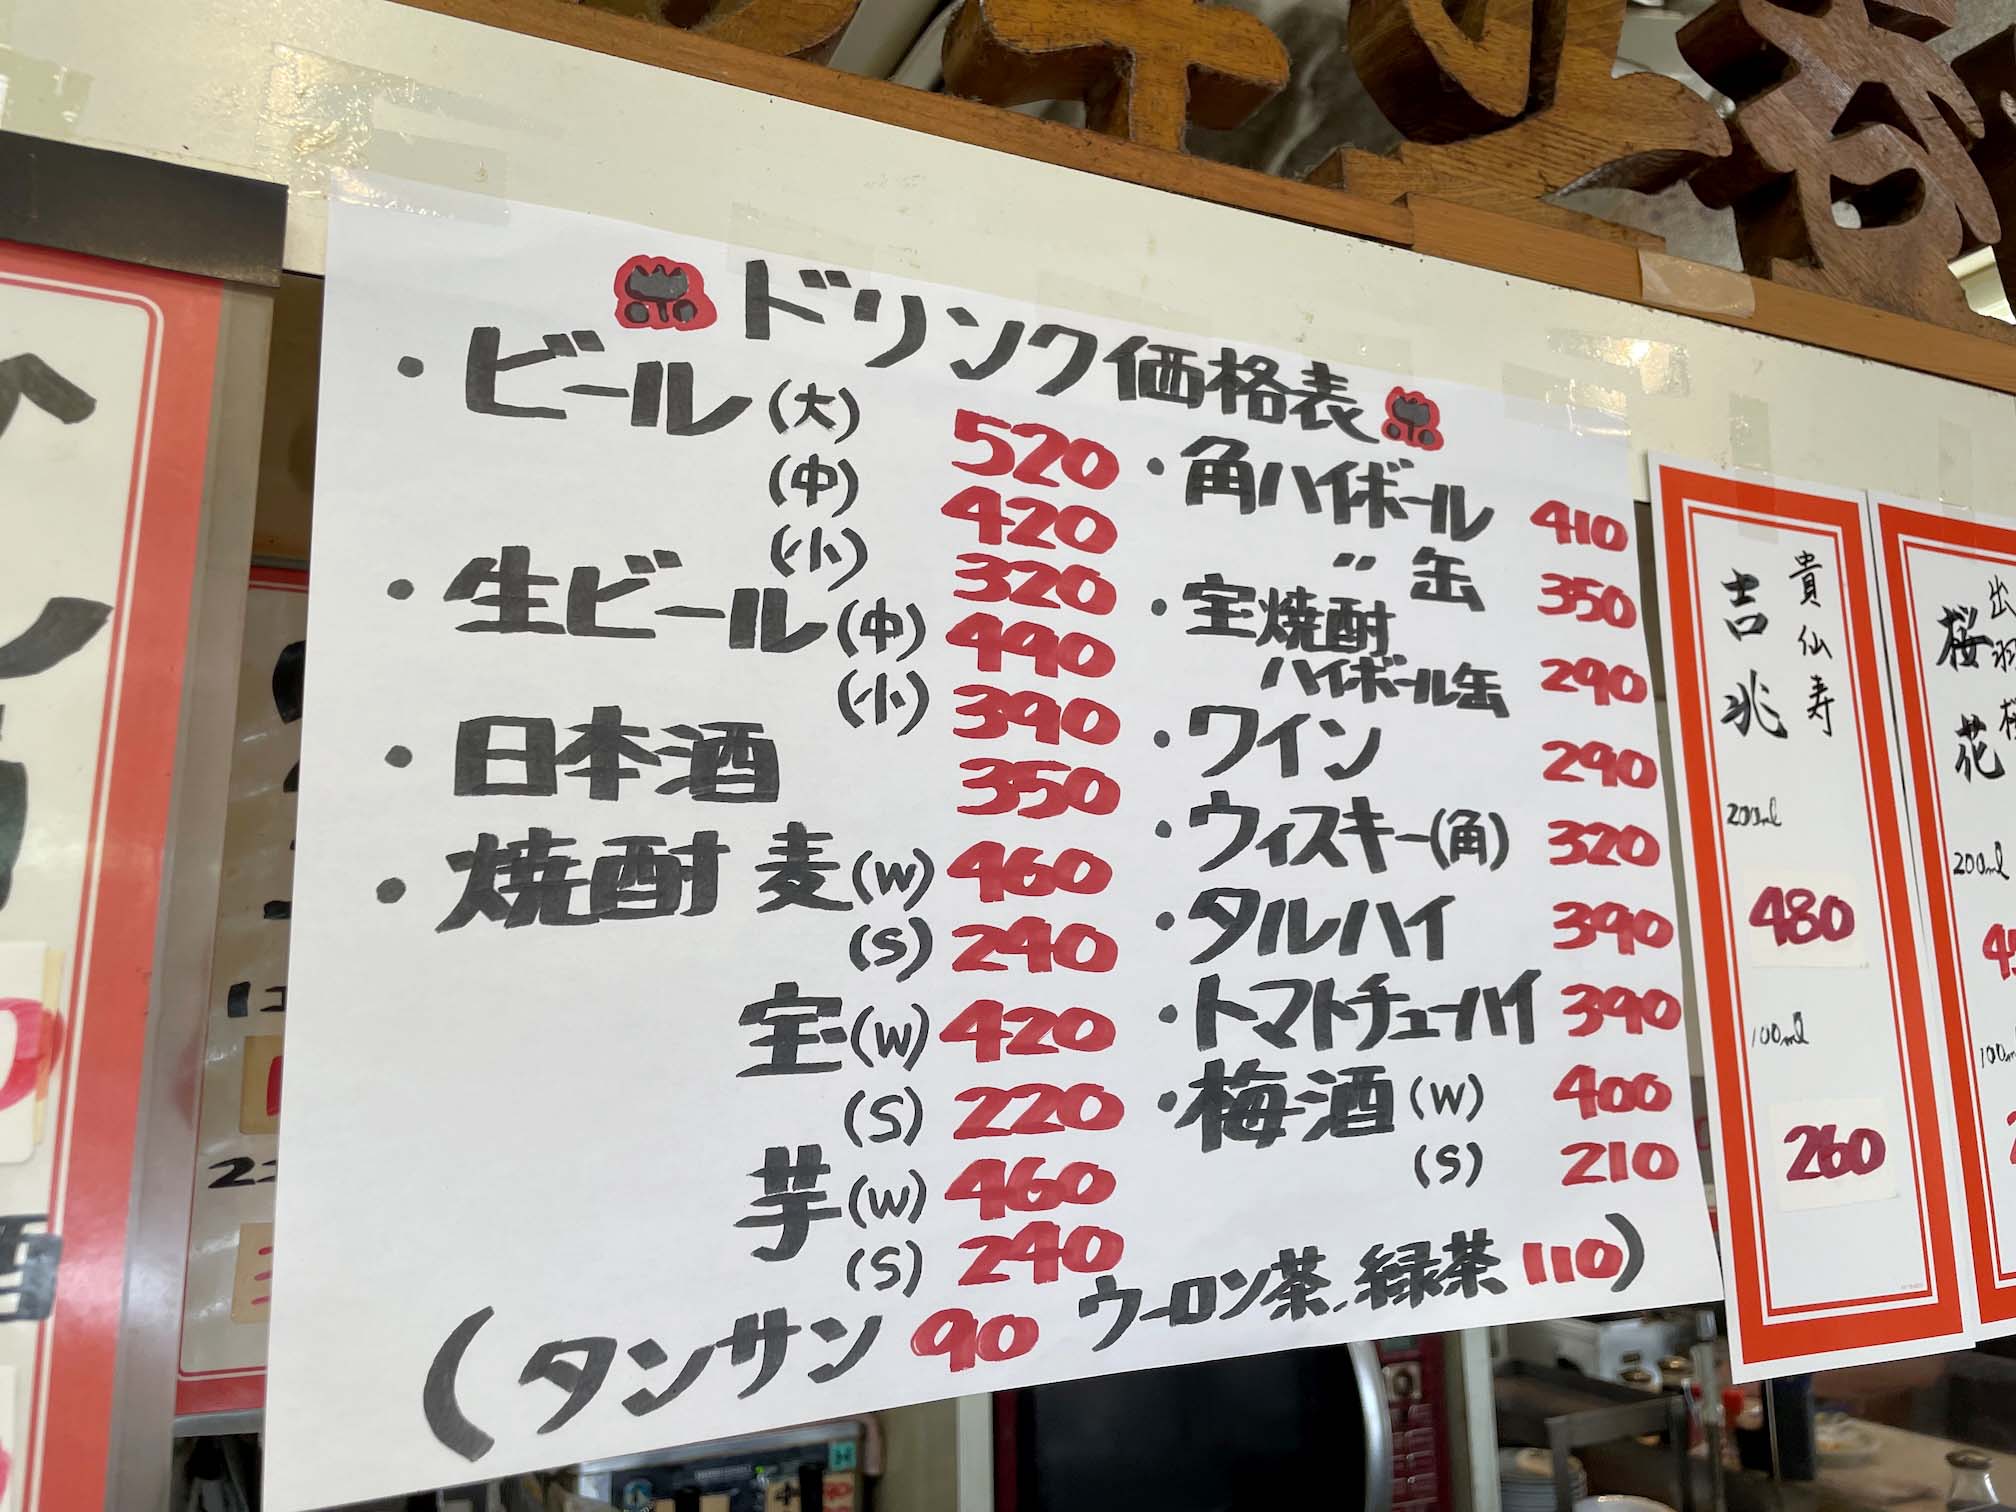 ドリンク価格表
・ビール(大) 520
(中) 420
(小) 320
・生ビール(中) 490
(小) 390
・日本酒 350
・焼酎 麦(W) 460
(S) 240
宝(W) 420
(S) 220
芋(W) 460
(S) 240
・角ハイボール 410
〃 缶 350
・宝焼酎
ハイボール缶 290
・ワイン 290
・ウィスキー(角) 320
・タルハイ 390
・トマトチューハイ 390
・梅酒(W) 400
(S) 210
(タンサン 90 ウーロン茶、緑茶 110)
貴仙寿
吉兆
200ml
480
100ml
260
桜花
200ml